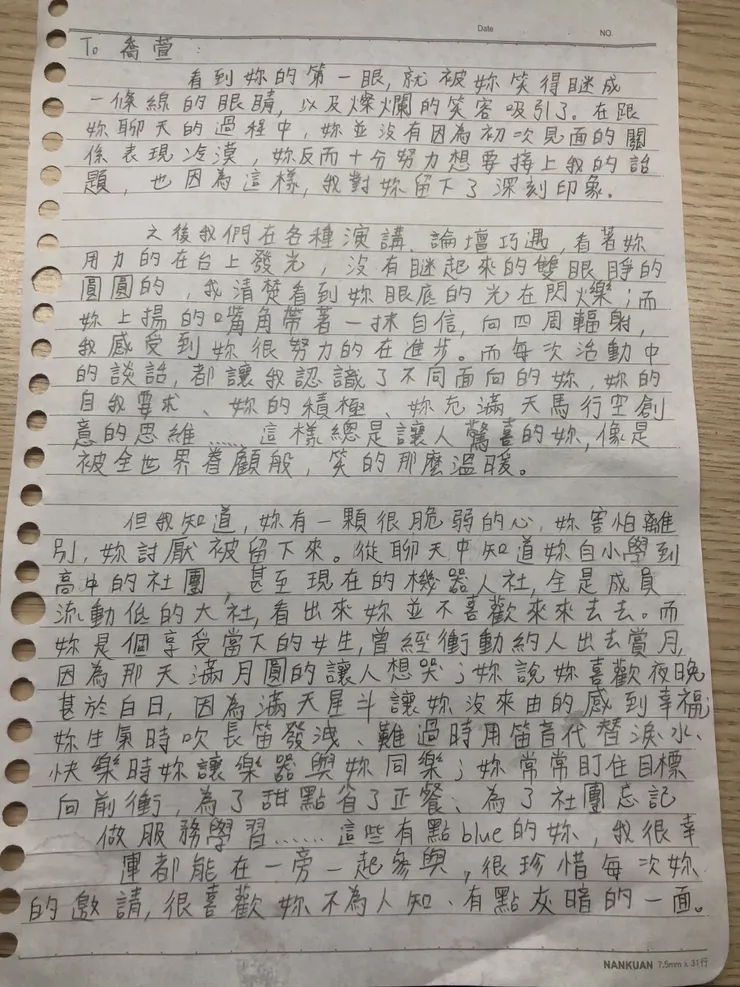 Date
NO.
To 喬萱:
看到妳的第一眼,就被妳笑得瞇成
一條線的眼睛,以及燦爛的笑容吸引了。在跟
妳聊天的過程中,妳並沒有因為初次見面的關
係表現冷漠,妳反而十分努力想要接上我的話
題,也因為這樣,我對妳留下了深刻印象。
之後我們在各種演講、論壇巧遇,看著妳
用力的在台上發光,沒有瞇起來的雙眼睜的
圓圓的,我清楚看到妳眼底的光在閃爍;而
妳上揚的嘴角帶著一抹自信,向四周輻射,
我感受到妳很努力的在進步。而每次活動中
的談話,都讓我認識了不同面向的妳,妳的
自我要求、妳的積極、妳充滿天馬行空創
意的思維……這樣總是讓人驚喜的妳,像是
被全世界眷顧般,笑的那麼溫暖。
但我知道,妳有一顆很脆弱的心,妳害怕離
別,妳討厭被留下來。從聊天中知道妳自小學到
高中的社團,甚至現在的機器人社,全是成員
流動低的大社,看出來妳並不喜歡來來去去。而
妳是個享受當下的女生,曾經衝動約人出去賞月,
因為那天滿月圓的讓人想哭;妳說妳喜歡夜晚
甚於白日,因為滿天星斗讓妳沒來由的感到幸福;
妳生氣時吹長笛發洩、難過時用笛音代替淚水、
快樂時妳讓樂器與妳同樂;妳常常盯住目標
向前衝,為了甜點省了正餐、為了社團忘記
做服務學習……這些有點blue的妳,我很幸
運都能在一旁一起參與,很珍惜每次妳
的邀請,很喜歡妳不為人知、有點灰暗的一面。
NANKUAN 7.5mm x 31行